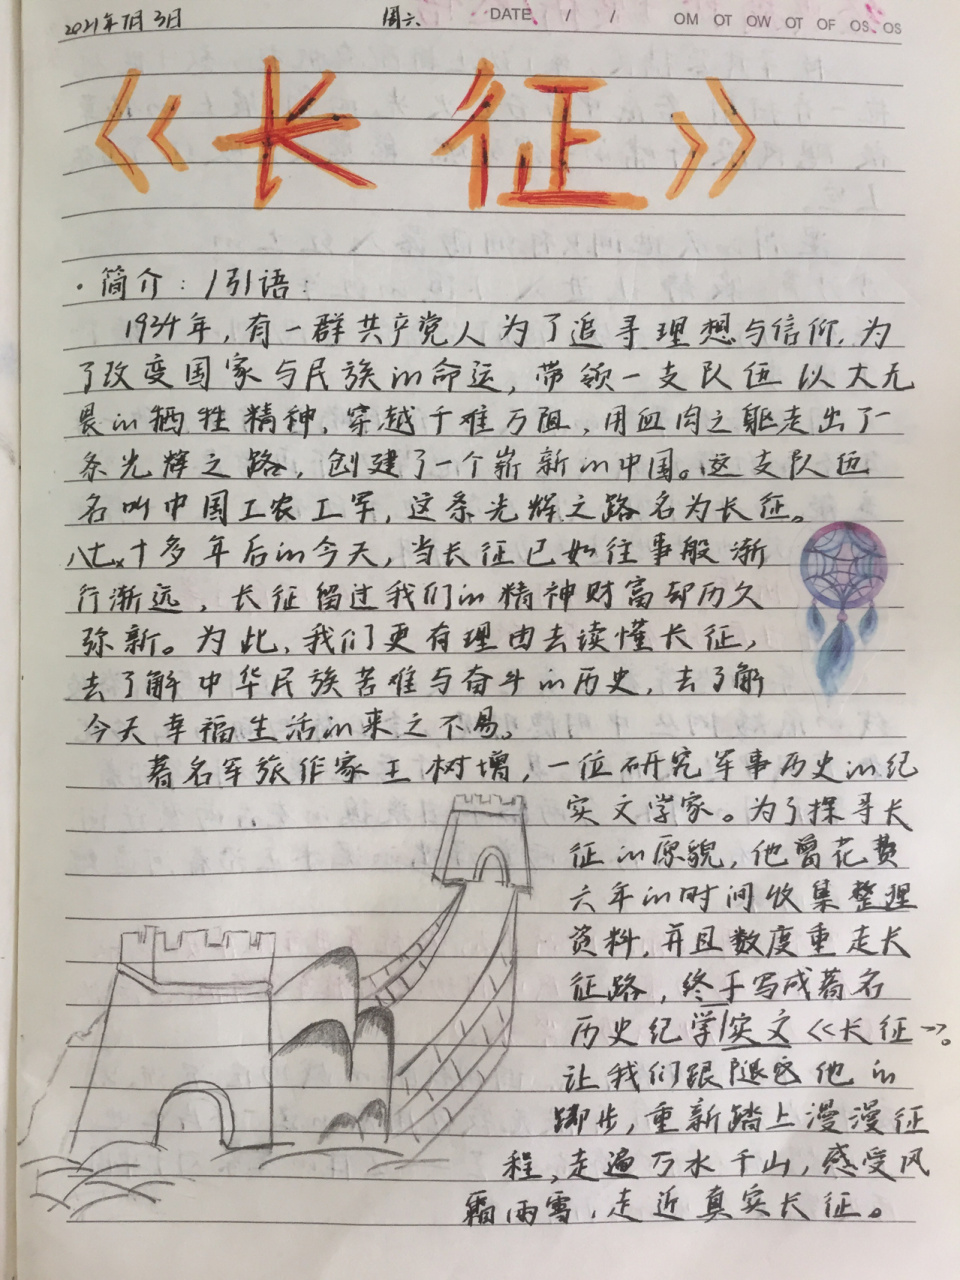 2021年7月3日 周六 DATE / / OM OT OW OT OF OS OS
《长征》
·简介:/引语:
1934年,有一群共产党人为了追寻理想与信仰,为
了改变国家与民族的命运,带领一支队伍以大无
畏的牺牲精神,穿越千难万阻,用血肉之躯走出了一
条光辉之路,创建了一个崭新的中国。这支队伍
名叫中国工农工军,这条光辉之路名为长征。
八七十多年后的今天,当长征已如往事般渐
行渐远,长征留过我们的精神财富却历久
弥新。为此,我们更有理由去读懂长征,
去了解中华民族苦难与奋斗的历史,去了解
今天幸福生活的来之不易。
著名军旅作家王树增,一位研究军事历史的纪
实文学家。为了探寻长
征的原貌,他曾花费
六年的时间收集整理
资料,并且数度重走长
征路,终于写成著名
历史纪学实文《长征》。
让我们跟随他的
脚步,重新踏上漫漫征
程,走遍万水千山,感受风
霜雨雪,走近真实长征。